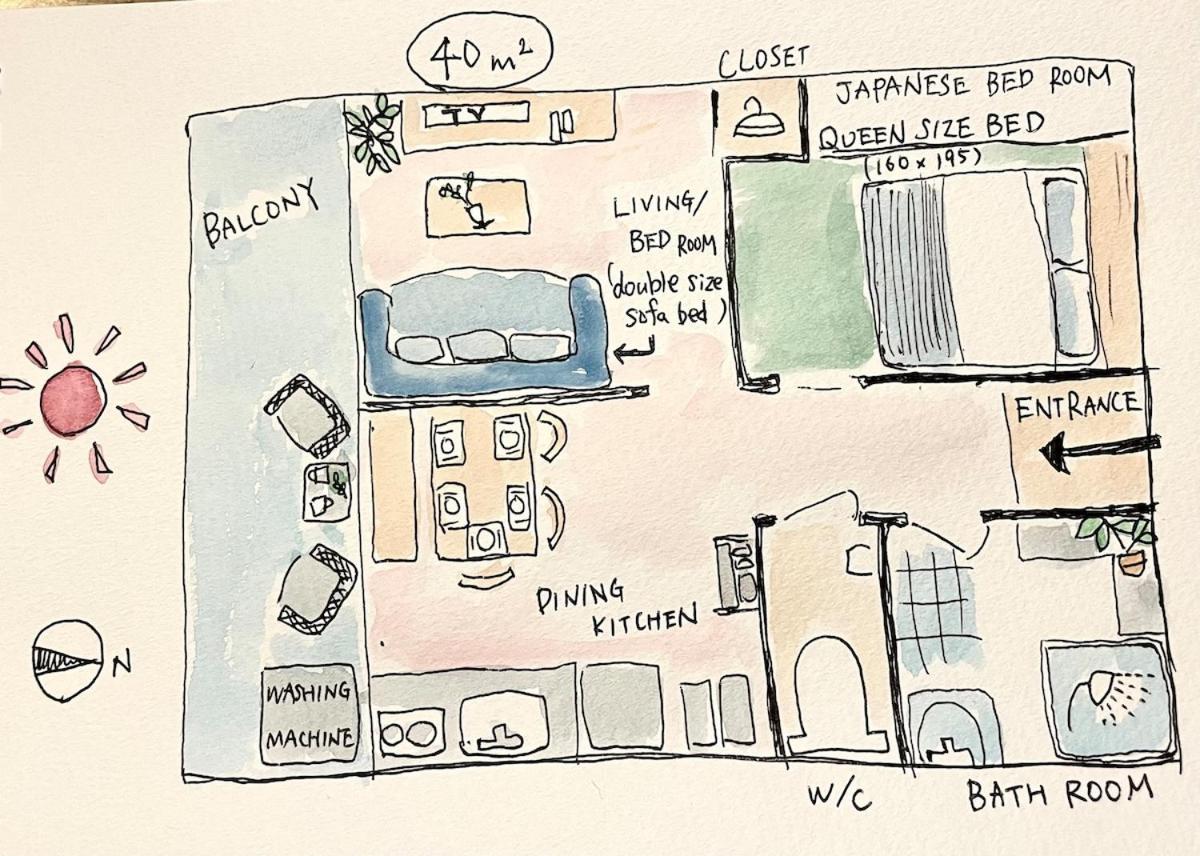 40m²
CLOSET
JAPANESE BED ROOM
QUEEN SIZE BED
(160 x 195)
TV
BALCONY
LIVING/
BED ROOM
(double size
sofa bed)
ENTRANCE
DINING
KITCHEN
N
WASHING
MACHINE
W/C
BATH ROOM